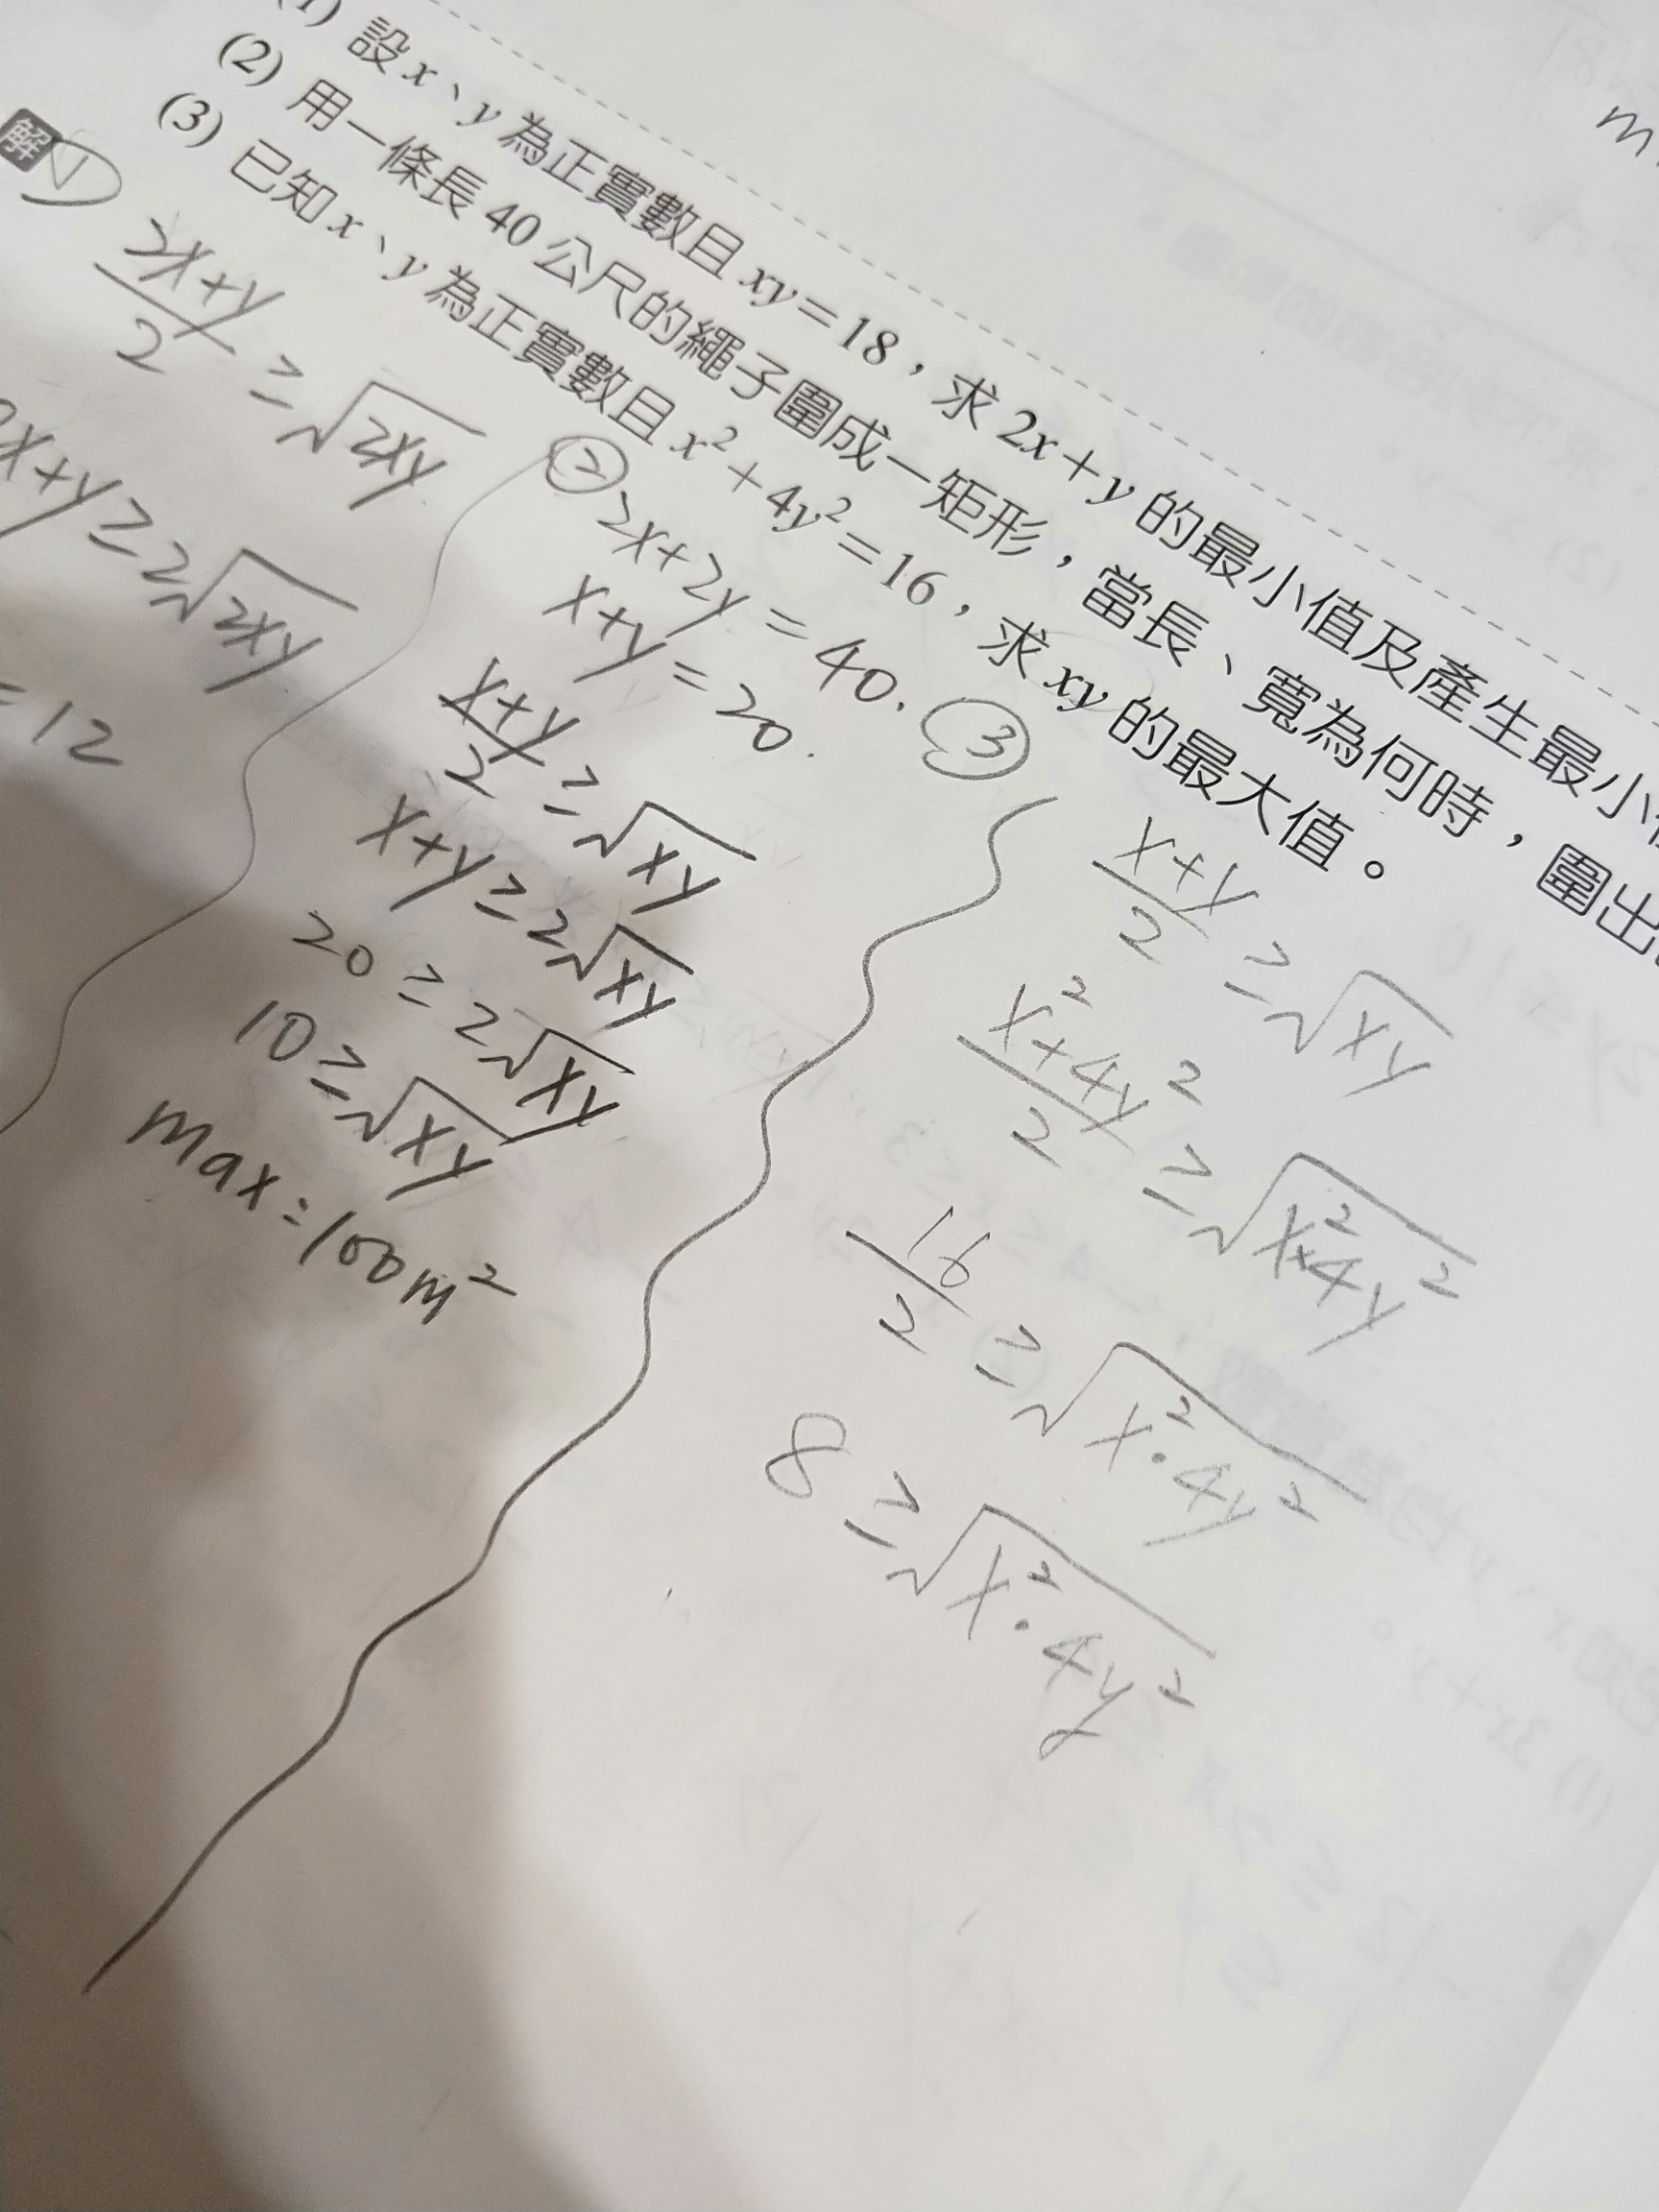 (1) 設 x、y 為正實數且 xy=18，求 2x+y 的最小值及產生最小
(2) 用一條長 40 公尺的繩子圍成一矩形，當長、寬為何時，圍出
(3) 已知 x、y 為正實數且 x²+4y²=16，求 xy 的最大值。
解
①
2x+y/2 ≥ √2xy
2x+y ≥ 2√2xy
=12
②
2x+2y=40.
x+y=20.
x+y/2 ≥ √xy
x+y ≥ 2√xy
20 ≥ 2√xy
10 ≥ √xy
max=100m²
③
x+y/2 ≥ √xy
x²+4y²/2 ≥ √x²·4y²
16/2 ≥ √x²·4y²
8 ≥ √x²·4y²
m